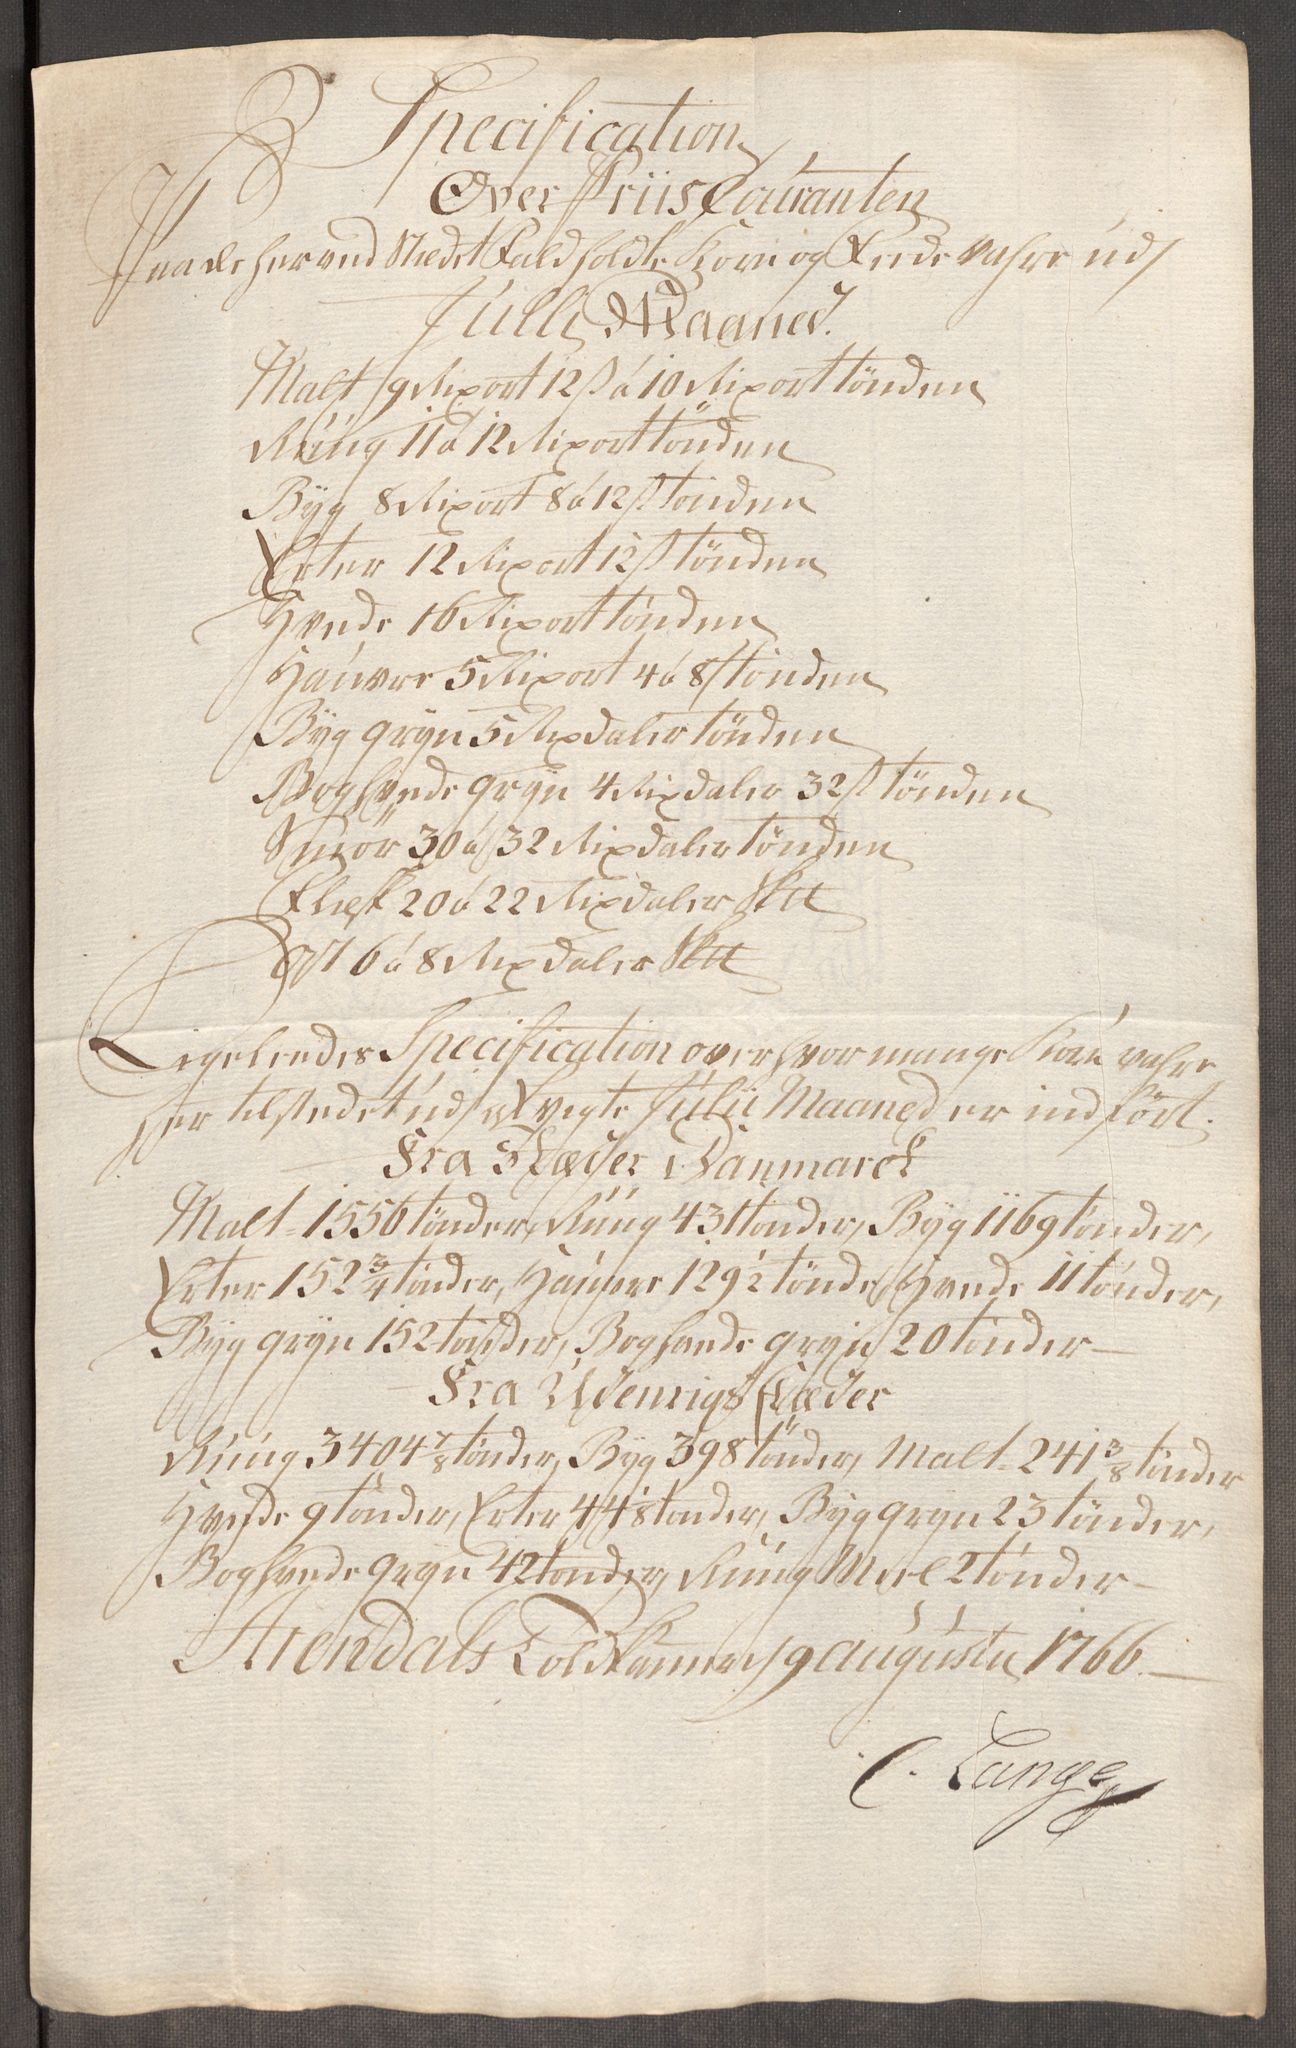 Specification
Over Priis Couranten
Paa de her ved Stædet Faldholdte Korn og Feede Vahre udj
Julli Maaned.
Malt 9 Rixort 12 s á 10 Rixort tønden
Rüug 11 á 12 Rixort tönden
Byg 8 Rixort 8 á 12 s tönden
Erter 12 Rixort 12 s tönden
Hvede 16 Rixort tönden
Haúvre 5 Rixort 4 á 8 s tönden
Byg gryn 5 Rixdaler tönden
Boghvede gryn 4 Rixdaler 32 s tönden
Smör 30 á 32 Rixdaler tönden
Flesk 20 á 22 Rixdaler
6 á 8 Rixdaler
Ligeleedes Specification over hvor mange Korn vahre
her til stedet udj Julii Maaned er indfört.
Fra Stæder i Danmarck
Malt 1556 tönder, Rúug 431 tönder, Byg 1169 tönder,
Erter 152 3/4 tönder, Haúvre 129 1/2 tönde, Hvede 11 tönder,
Byg gryn 152 tönder, Boghvede gryn 20 tönder
Fra Udenrigs Stæder
Rúug 3404 7/8 tönder, Byg 398 tönder, Malt 241 3/8 tönder
Hvede 9 tönder, Erter 44 1/8 tönder, Byg gryn 23 tönder,
Boghvede gryn 42 tönder, Rúug Meel 2 tönder
Arendals Toldkammer 9 augústii 1766.
C. Lange